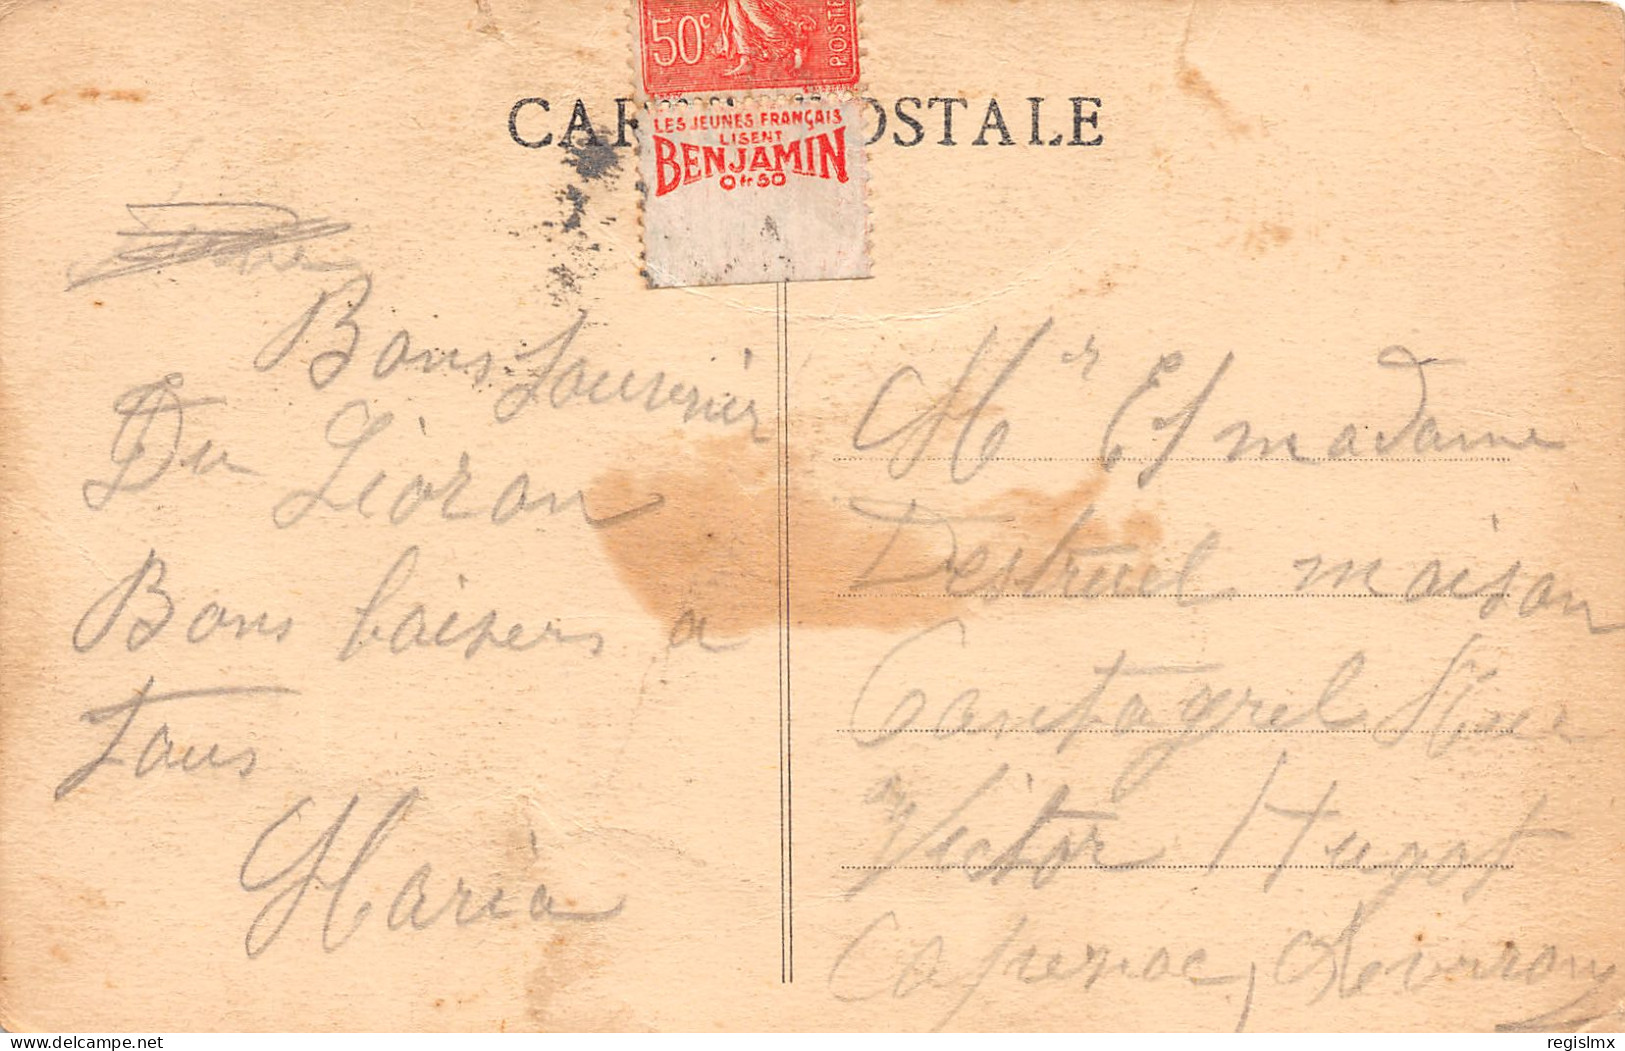 50c
POSTE
CARTE POSTALE
LES JEUNES FRANÇAIS
LISENT
BENJAMIN
0fr50
Bons Souvenir
Du Lioran
Bons baisers a
Tous
Maria
Mr Et madame
Destruel maison
Cantagrel Rue
Victor Hugot
Capenac, Aveyron
delcampe.net
regislmx